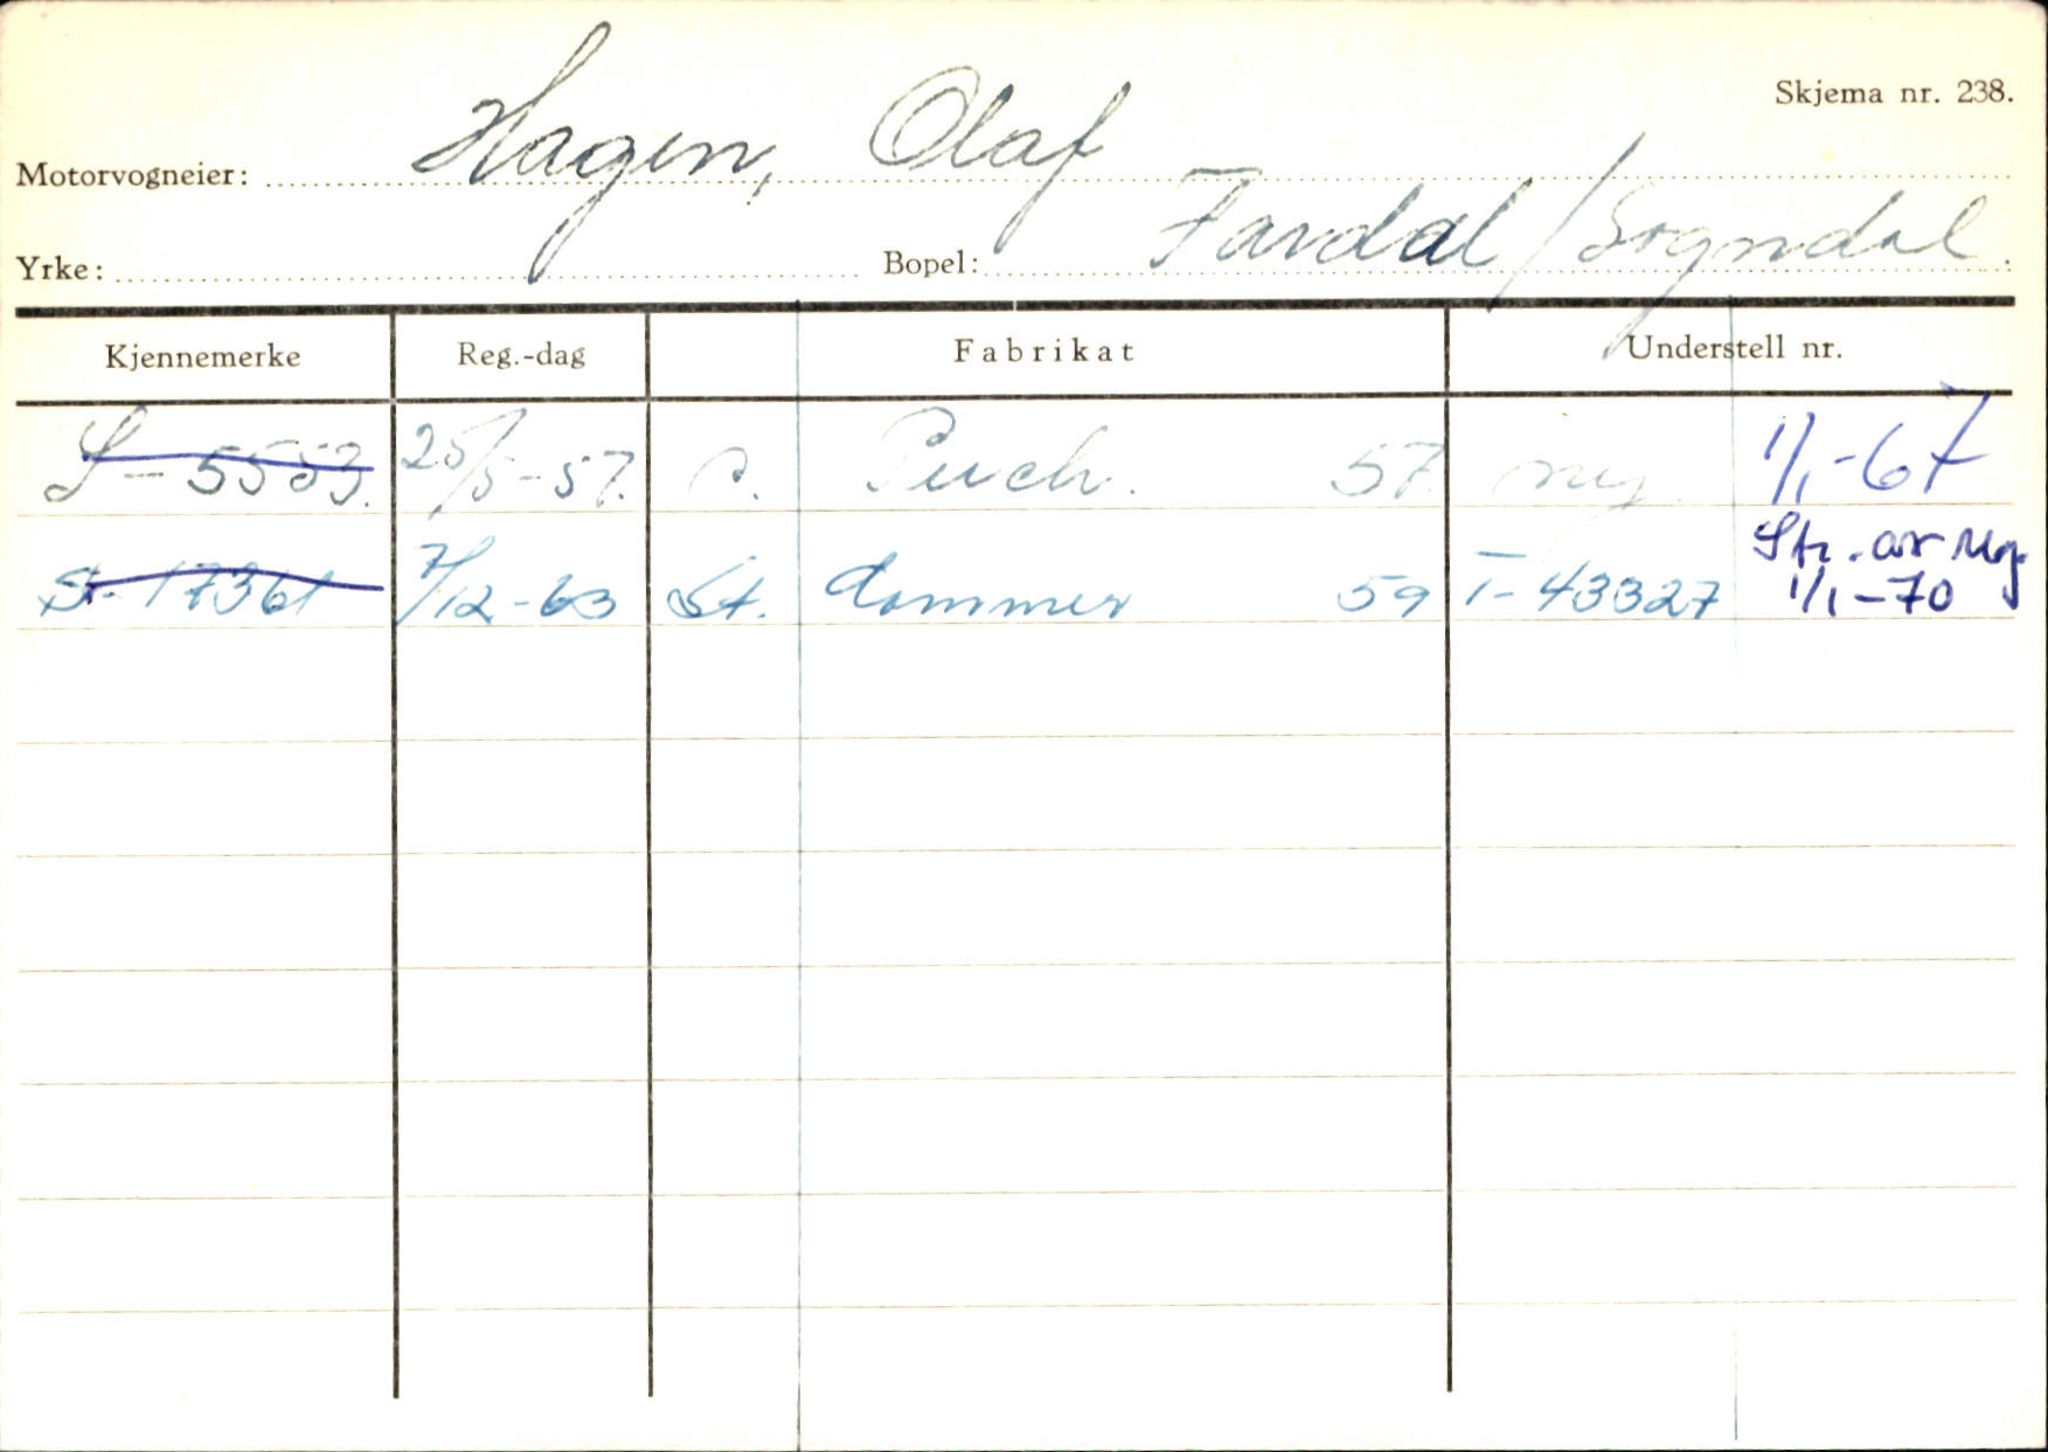 Skjema nr. 238.
Motorvogneier: Hagen, Olaf
Yrke: Bopel: Fardal / Sogndal.
Kjennemerke Reg.-dag Fabrikat Understell nr.
S-5553. 25/5-57. Puch. 57. 1/1-67
S-17361 7/12-63 St. Commer 59 T-43327 Str. av reg. 1/1-70